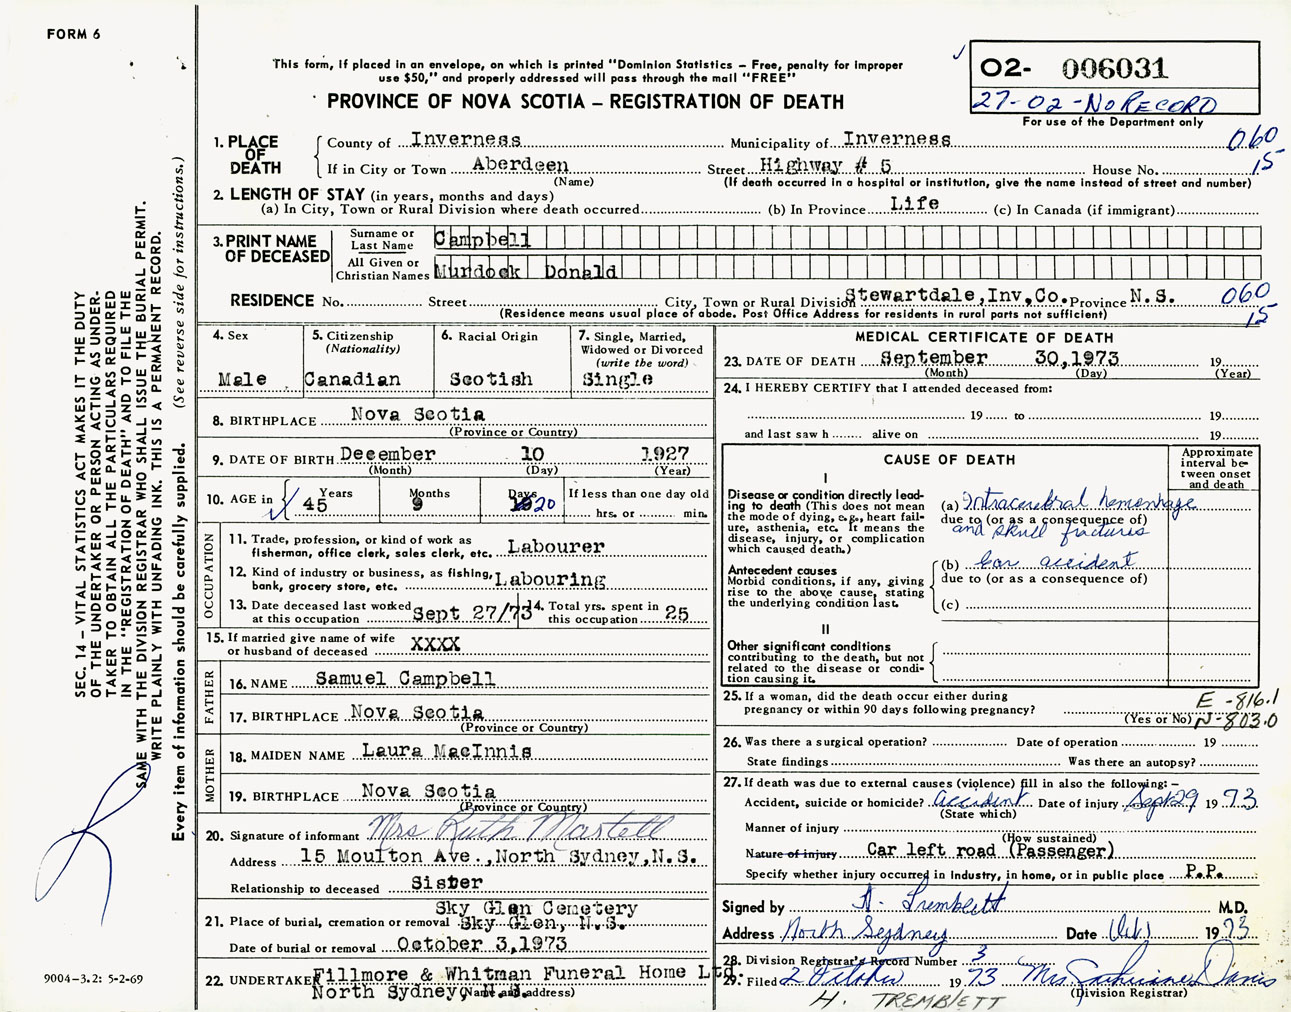 FORM 6
This form, if placed in an envelope, on which is printed "Dominion Statistics – Free, penalty for improper
use $50," and properly addressed will pass through the mail "FREE"
PROVINCE OF NOVA SCOTIA – REGISTRATION OF DEATH
02- 006031
27-02-No RECORD
For use of the Department only
1. PLACE OF DEATH
County of Inverness Municipality of Inverness 060
If in City or Town Aberdeen Street Highway # 5 House No. 15
(Name) (If death occurred in a hospital or institution, give the name instead of street and number)
2. LENGTH OF STAY (in years, months and days)
(a) In City, Town or Rural Division where death occurred (b) In Province Life (c) In Canada (if immigrant)
3. PRINT NAME OF DECEASED
Surname or Last Name Campbell
All Given or Christian Names Murdock Donald
RESIDENCE No. Street City, Town or Rural Division Stewartdale, Inv, Co. Province N.S. 060
(Residence means usual place of abode. Post Office Address for residents in rural parts not sufficient) 15
4. Sex
Male
5. Citizenship
(Nationality)
Canadian
6. Racial Origin
Scotish
7. Single, Married,
Widowed or Divorced
(write the word)
Single
8. BIRTHPLACE Nova Scotia
(Province or Country)
9. DATE OF BIRTH December 10 1927
(Month) (Day) (Year)
10. AGE in Years Months Days If less than one day old
45 9 20 hrs. or min.
OCCUPATION
11. Trade, profession, or kind of work as
fisherman, office clerk, sales clerk, etc. Labourer
12. Kind of industry or business, as fishing,
bank, grocery store, etc. Labouring
13. Date deceased last worked
at this occupation Sept 27/73
14. Total yrs. spent in
this occupation 25
15. If married give name of wife
or husband of deceased XXXX
FATHER
16. NAME Samuel Campbell
17. BIRTHPLACE Nova Scotia
(Province or Country)
MOTHER
18. MAIDEN NAME Laura MacInnis
19. BIRTHPLACE Nova Scotia
(Province or Country)
20. Signature of informant Mrs Ruth Martell
Address 15 Moulton Ave., North Sydney, N.S.
Relationship to deceased Sister
Sky Glen Cemetery
21. Place of burial, cremation or removal Sky Glen, N.S.
Date of burial or removal October 3, 1973
22. UNDERTAKER Fillmore & Whitman Funeral Home Ltd.
North Sydney, N.S.
(Name and address)
MEDICAL CERTIFICATE OF DEATH
23. DATE OF DEATH September 30, 1973 19
(Month) (Day) (Year)
24. I HEREBY CERTIFY that I attended deceased from:
19 to 19
and last saw h alive on 19
CAUSE OF DEATH
Approximate
interval be-
tween onset
and death
I
Disease or condition directly lead-
ing to death (This does not mean
the mode of dying, e.g., heart fail-
ure, asthenia, etc. It means the
disease, injury, or complication
which caused death.)
(a) Intracerebral hemorrhage
due to (or as a consequence of)
and skull fractures
Antecedent causes
Morbid conditions, if any, giving
rise to the above cause, stating
the underlying condition last.
(b) Car accident
due to (or as a consequence of)
(c)
II
Other significant conditions
contributing to the death, but not
related to the disease or condi-
tion causing it.
25. If a woman, did the death occur either during
pregnancy or within 90 days following pregnancy?
(Yes or No)
E -816.1
N-803.0
26. Was there a surgical operation? Date of operation 19
State findings Was there an autopsy?
27. If death was due to external causes (violence) fill in also the following: –
Accident, suicide or homicide? accident Date of injury Sept 29 1973
(State which)
Manner of injury
(How sustained)
Nature of injury Car left road (Passenger)
Specify whether injury occurred in industry, in home, or in public place P.P.
Signed by H. Tremblett M.D.
Address North Sydney Date Oct 1 1973
28. Division Registrar's Record Number 3
29. Filed 2 October 1973 Mrs Davis
(Division Registrar)
H. TREMBLETT
SEC. 14 – VITAL STATISTICS ACT MAKES IT THE DUTY
OF THE UNDERTAKER OR PERSON ACTING AS UNDER-
TAKER TO OBTAIN ALL THE PARTICULARS REQUIRED
IN THE "REGISTRATION OF DEATH" AND TO FILE THE
SAME WITH THE DIVISION REGISTRAR WHO SHALL ISSUE THE BURIAL PERMIT.
WRITE PLAINLY WITH UNFADING INK. THIS IS A PERMANENT RECORD.
Every item of information should be carefully supplied. (See reverse side for instructions.)
9004–3.2: 5-2-69